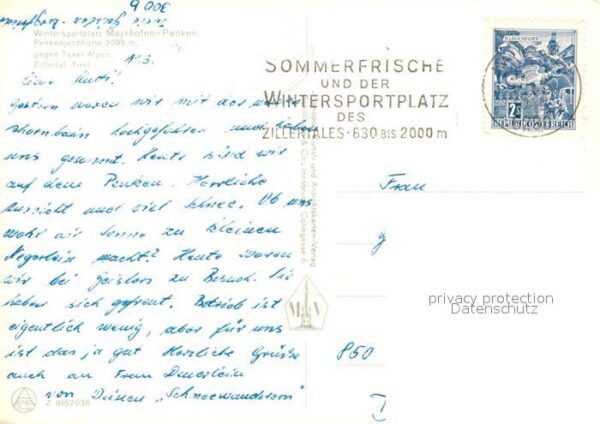 300 b
Wintersportplatz Mayrhofen-Penken
Penkenjochhütte 2095 m,
gegen Tuxer Alpen,
Zillertal, Tirol
Liebe Mutti!
Gestern waren wir mit der
hornbahn hochgefahren und haben
uns gesonnt. Heute sind wir
auf dem Penken. Herrliche
Aussicht und viel Schnee. Ob uns
wohl die Sonne zu kleinen
Negerlein macht? Heute waren
wir bei Geislers zu Besuch. Sie
haben sich gefreut. Betrieb ist
eigentlich wenig, aber für uns
ist das ja gut Herzliche Grüße
auch an Frau
von Deinen „
Z 9157038
SOMMERFRISCHE
UND DER
WINTERSPORTPLATZ
DES
ZILLERTALES · 630 BIS 2000 m
KLAGENFURT
REPUBLIK ÖSTERREICH
Ansichtskarten-Verlag
& Co., Innsbruck, Colingasse
M V
Frau
850
I
privacy protection
Datenschutz